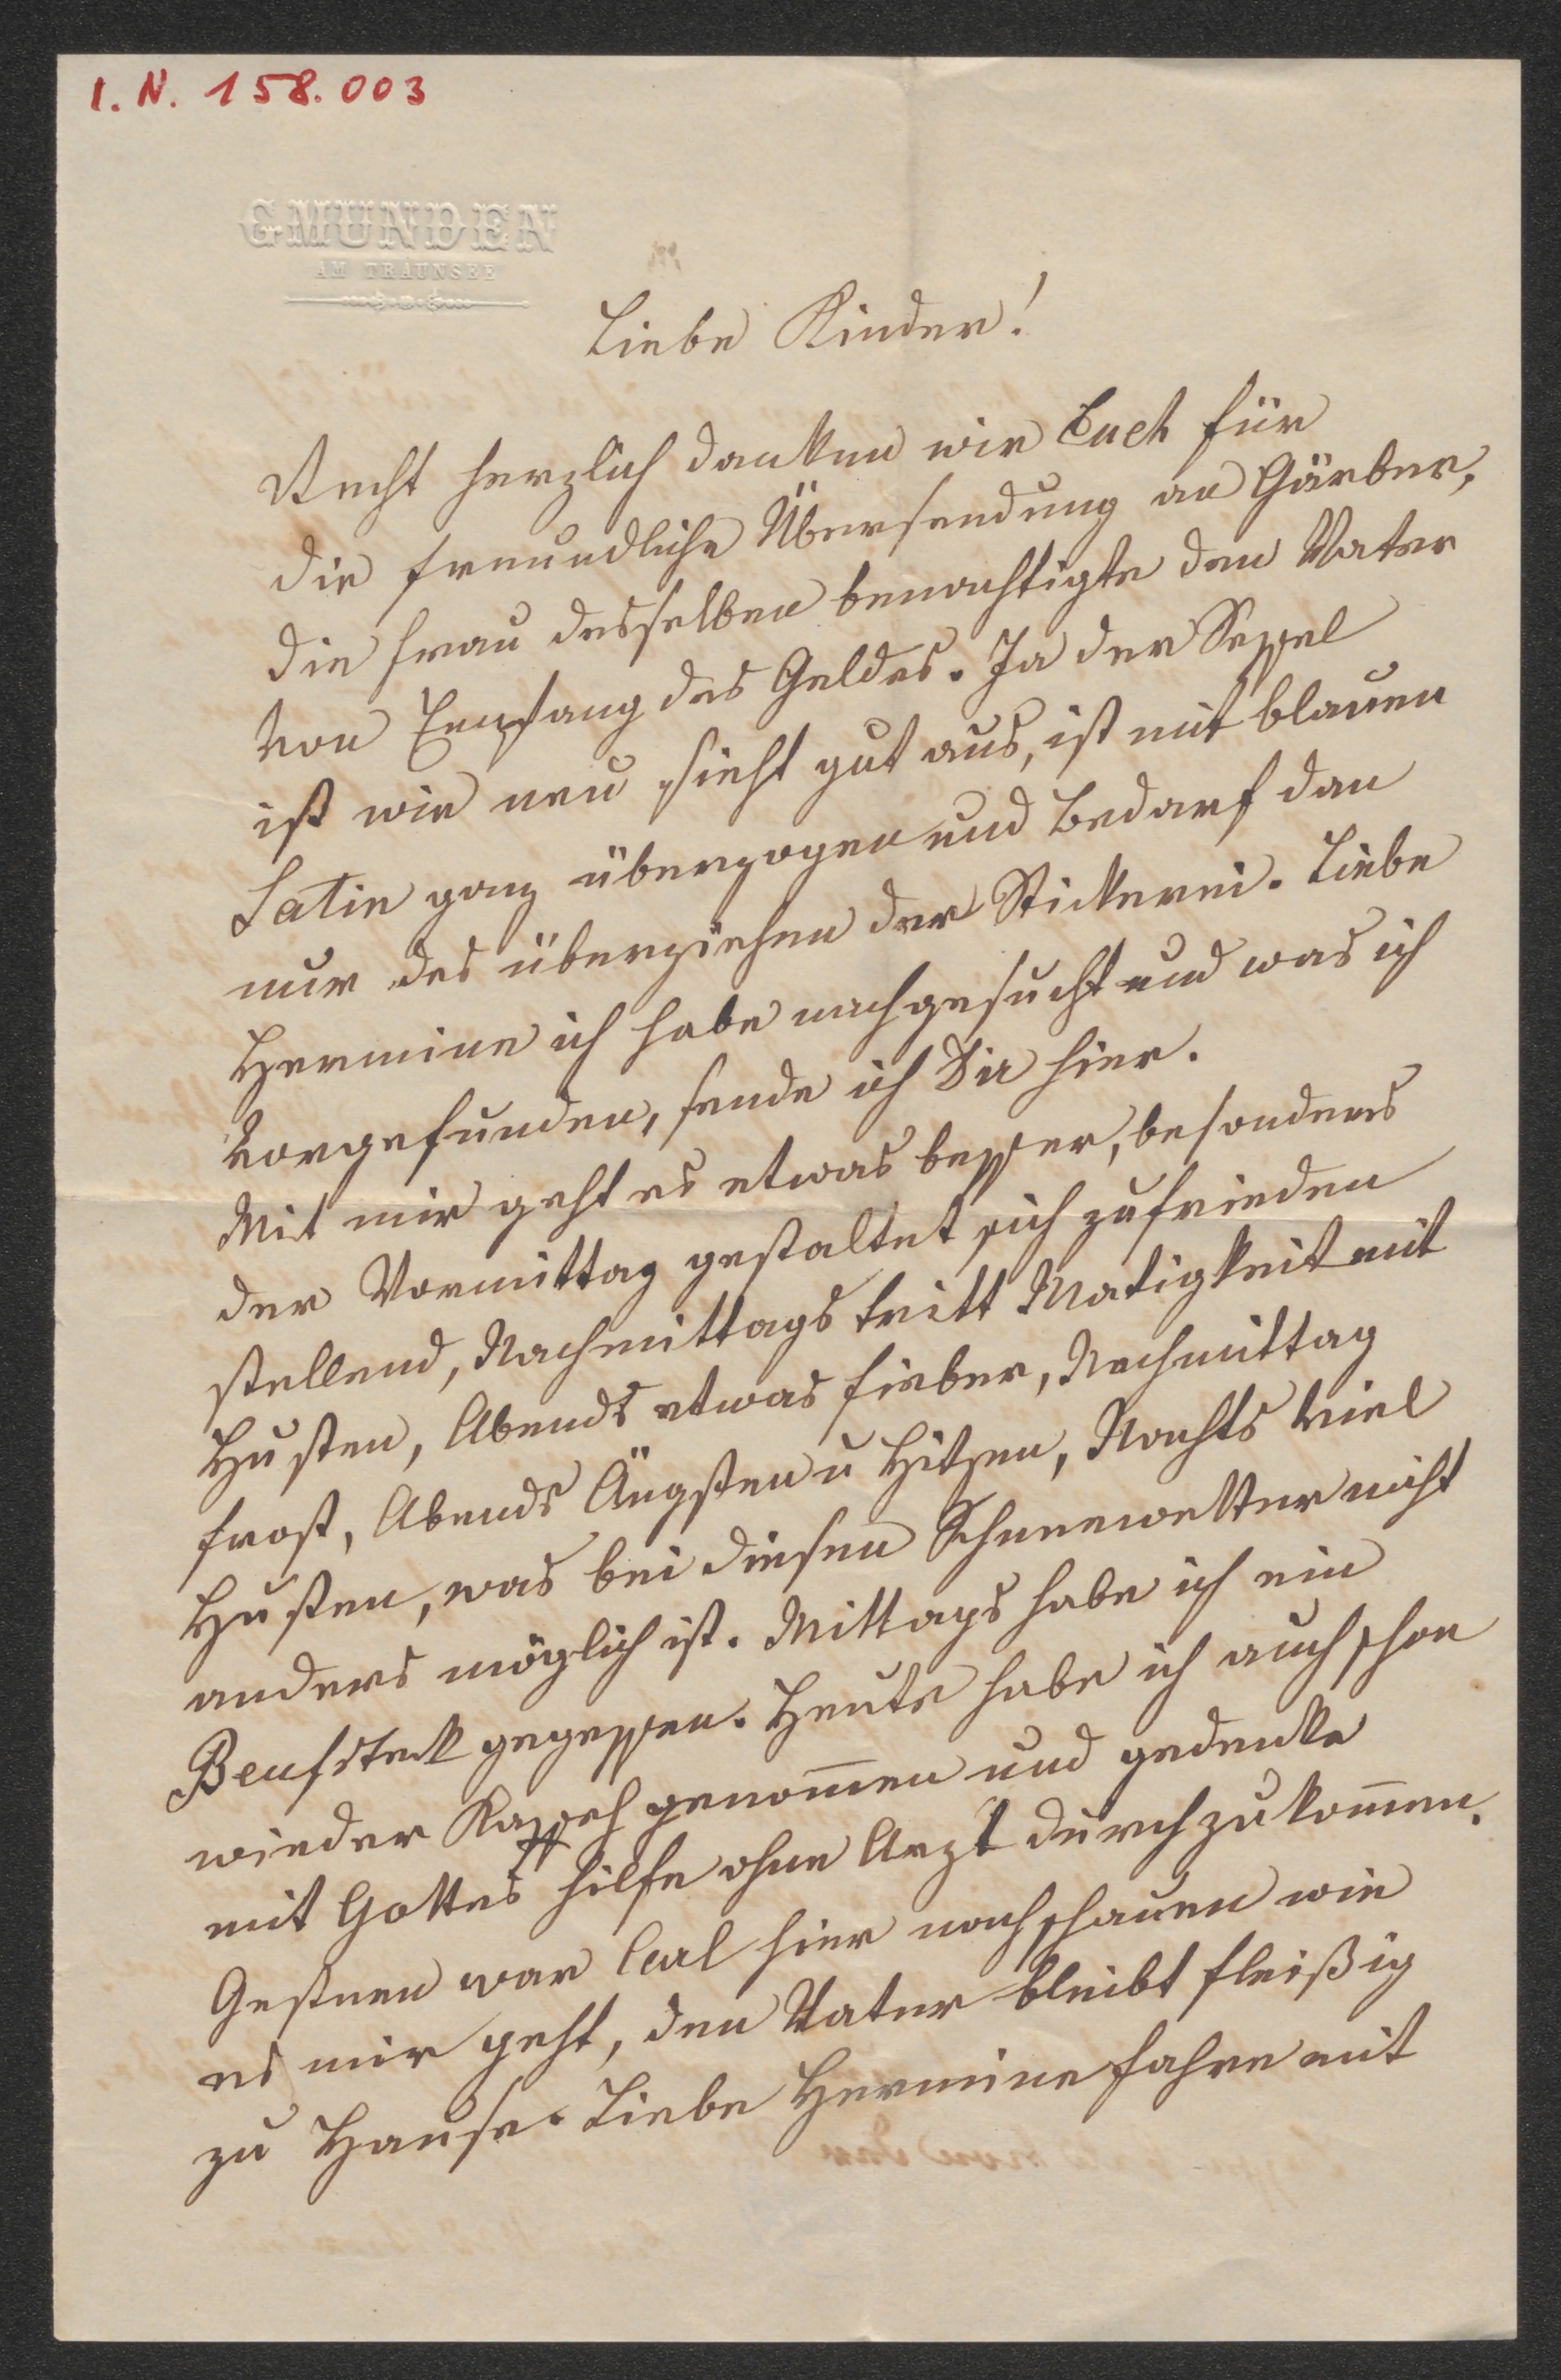 I.N. 158.003
GMUNDEN
AM TRAUNSEE
Liebe Kinder!
Recht herzlich danken wir Euch für
die freundliche Übersendung an Gärber,
die Frau desselben benachtigte den Vater
von Empfang des Geldes. Ja der Sessel
ist wie neu sieht gut aus, ist mit blauen
Satin ganz überzogen und bedarf dan
nur des überziehen der Stickerei. Liebe
Hermine ich habe nachgesucht und was ich
vorgefunden, sende ich Dir hier.
Mit mir geht es etwas besser, besonders
der Vormittag gestaltet sich zufrieden
stellend, Nachmittags tritt Matigkeit mit
Husten, Abends etwas Fieber, Nachmittag
Frost, Abends Ängsten u Hitzen, Nachts viel
Husten, was bei diesen Schneewetter nicht
anders möglich ist. Mittags habe ich ein
Beufsteck gegessen. Heute habe ich auch schon
wieder Kaffeh genom̄en und gedenke
mit Gottes Hilfe ohne Arzt durchzukom̄en.
Gestern war Carl hier nachschauen wie
es mir geht, den Vater bleibt fleißig
zu Hause. Liebe Hermine fahre mit